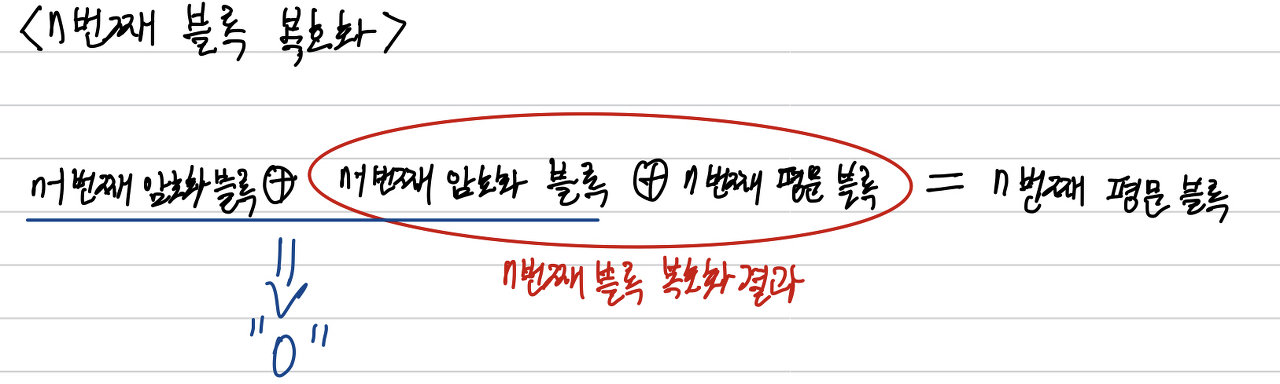 <n번째 블록 복호화>
n-1번째 암호화 블록 ⊕ n-1번째 암호화 블록 ⊕ n번째 평문 블록 = n번째 평문 블록
n번째 블록 복호화 결과
"0"